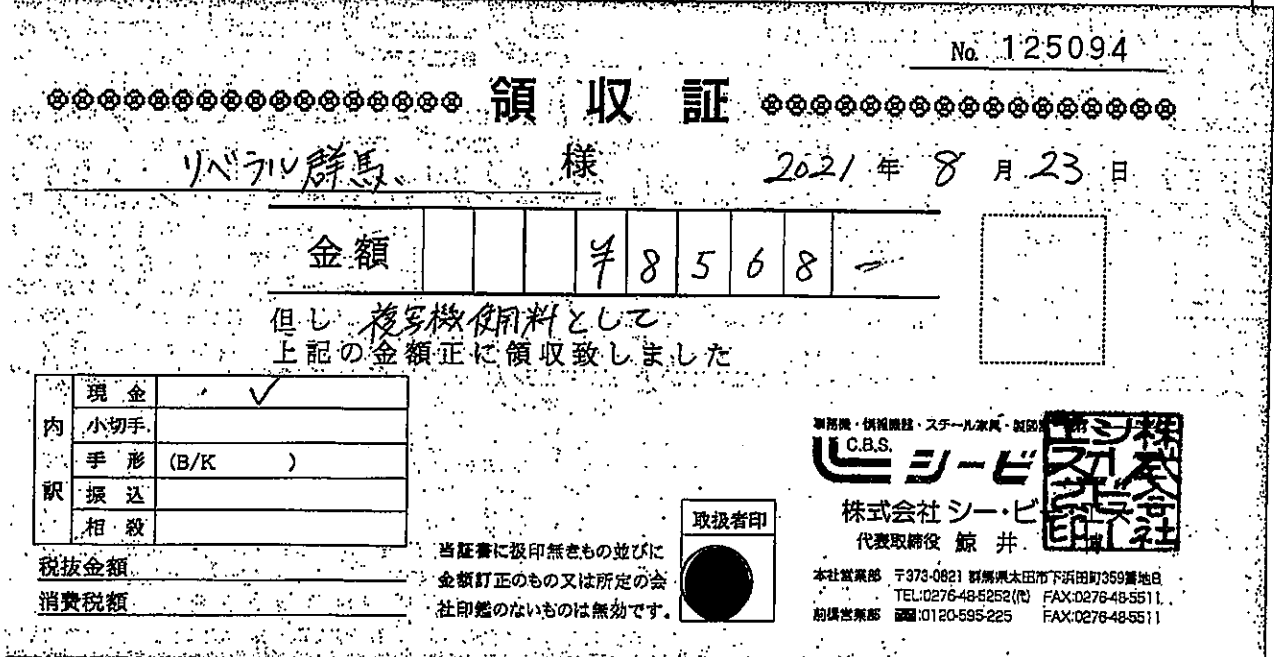 No. 125094
領収証
リベラル群馬 様 2021年8月23日
金額 ¥8568-
但し 複写機使用料として
上記の金額正に領収致しました
内訳
現金 ✓
小切手
手形 (B/K )
振込
相殺
税抜金額
消費税額
当証書に扱印無きもの並びに
金額訂正のもの又は所定の会
社印鑑のないものは無効です。
取扱者印
事務機・情報機器・スチール家具・
C.B.S.
シービ
株式会社 シー・ビー
代表取締役 鯨井
本社営業部 〒373-0821 群馬県太田市下浜田町359番地8
TEL:0276-48-5252(代) FAX:0276-48-5511
前橋営業部 :0120-595-225 FAX:0276-48-5511